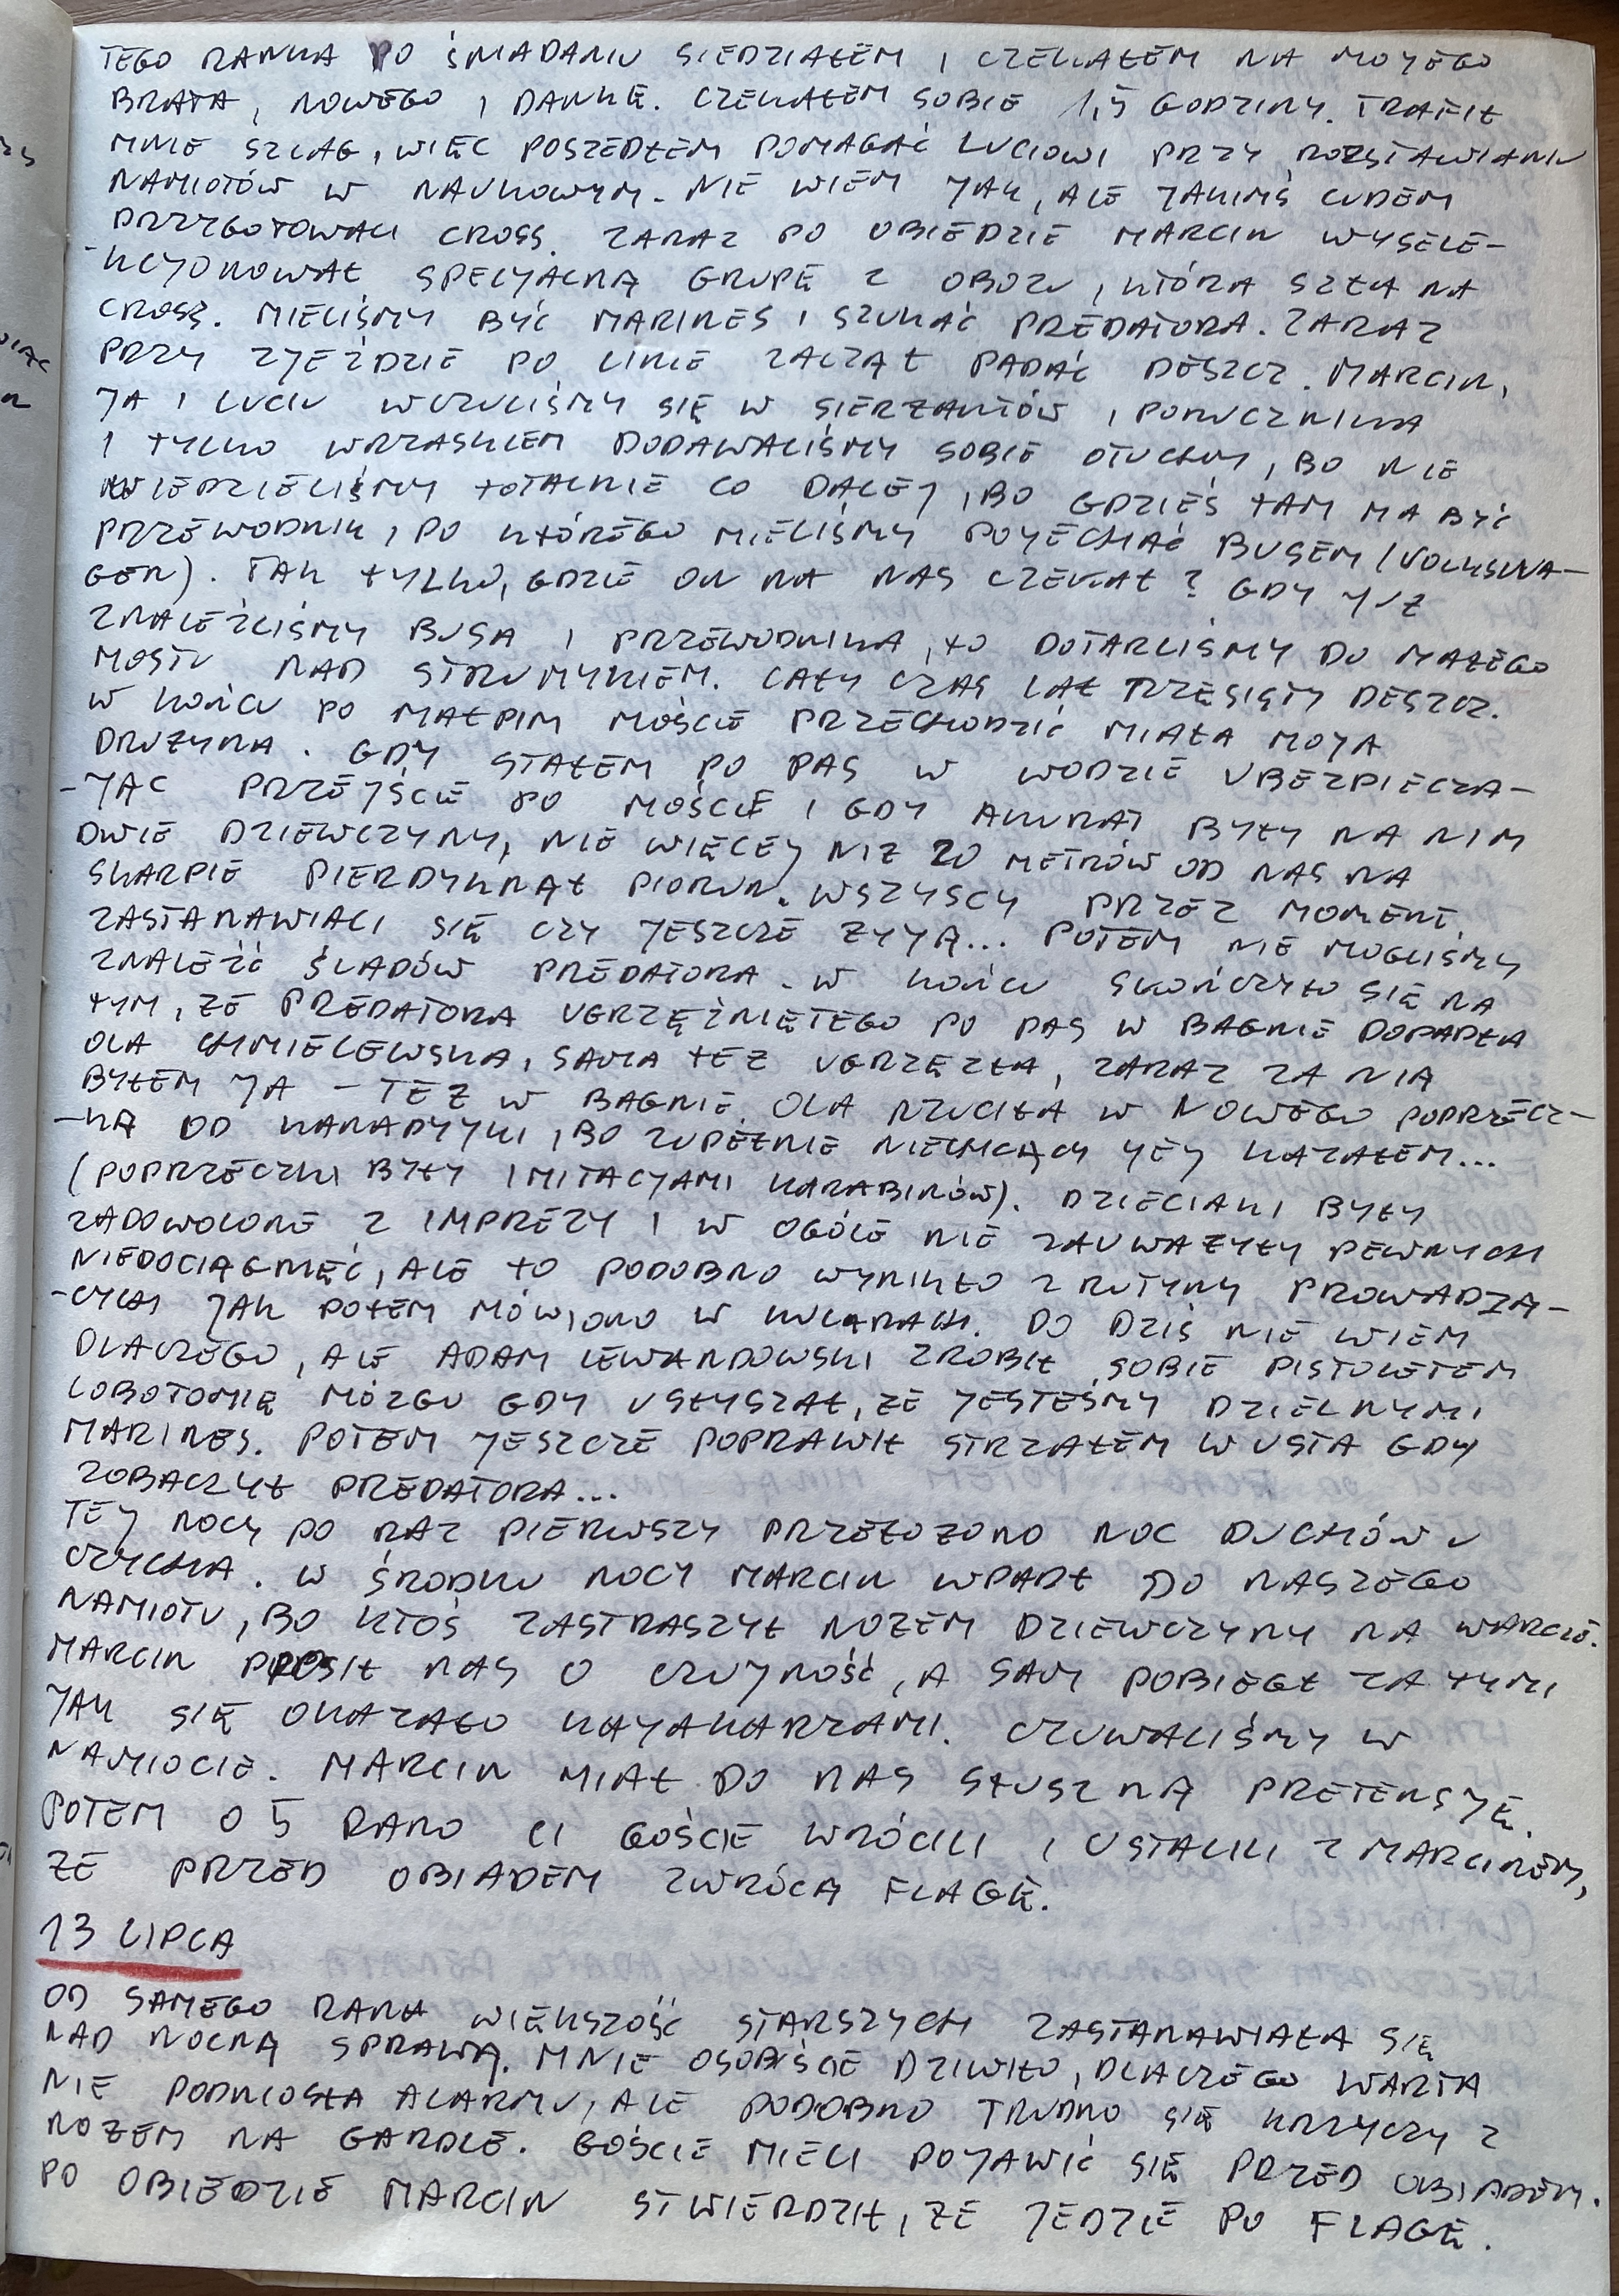 TEGO RANKA PO ŚNIADANIU SIEDZIAŁEM I CZEKAŁEM NA MOJEGO
BRATA, NOWEGO I DANKĘ. CZEKAŁEM SOBIE 1,5 GODZINY. TRAFIŁ
MNIE SZLAG, WIĘC POSZEDŁEM POMAGAĆ LUCIOWI PRZY ROZSTAWIANIU
NAMIOTÓW W NAUKOWYM. NIE WIEM JAK, ALE JAKIMŚ CUDEM
PRZYGOTOWALI CROSS. ZARAZ PO OBIEDZIE MARCIN WYSELE-
-KCJONOWAŁ SPECJALNĄ GRUPĘ Z OBOZU, KTÓRA SZŁA NA
CROSS. MIELIŚMY BYĆ MARINES I SZUKAĆ PREDATORA. ZARAZ
PRZY ZJEŹDZIE PO LINIE ZACZĄŁ PADAĆ DESZCZ. MARCIN,
JA I LUCIU WCZULIŚMY SIĘ W SIERŻANTÓW I PORUCZNIKA
I TYLKO WRZASKIEM DODAWALIŚMY SOBIE OTUCHY, BO NIE
WIEDZIELIŚMY TOTALNIE CO DALEJ, BO GDZIEŚ TAM MA BYĆ
PRZEWODNIK, PO KTÓREGO MIELIŚMY POJECHAĆ BUSEM (VOLKSWA-
GEN). TAK TYLKO, GDZIE ON NA NAS CZEKAŁ? GDY JUŻ
ZNALEŹLIŚMY BUSA I PRZEWODNIKA, TO DOTARLIŚMY DO MAŁEGO
MOSTU NAD STRUMYKIEM. CAŁY CZAS LAŁ RZĘSISTY DESZCZ.
W KOŃCU PO MAŁPIM MOŚCIE PRZECHODZIĆ MIAŁA MOJA
DRUŻYNA. GDY STAŁEM PO PAS W WODZIE UBEZPIECZA-
-JĄC PRZEJŚCIE PO MOŚCIE I GDY AKURAT BYŁY NA NIM
DWIE DZIEWCZYNY, NIE WIĘCEJ NIŻ 20 METRÓW OD NAS NA
SKARPIE PIERDYKNĄŁ PIORUN. WSZYSCY PRZEZ MOMENT
ZASTANAWIALI SIĘ CZY JESZCZE ŻYJĄ... POTEM NIE MOGLIŚMY
ZNALEŹĆ ŚLADÓW PREDATORA. W KOŃCU SKOŃCZYŁO SIĘ NA
TYM, ŻE PREDATORA UGRZĘŹNIĘTEGO PO PAS W BAGNIE DOPADŁA
OLA CHMIELEWSKA, SAMA TEŻ UGRZĘZŁA, ZARAZ ZA NIĄ
BYŁEM JA - TEŻ W BAGNIE. OLA RZUCIŁA W NOWEGO POPRZECZ-
-KĄ OD KANADYJKI, BO ZUPEŁNIE NIECHCĄCY JEJ KAZAŁEM...
(POPRZECZKI BYŁY IMITACJAMI KARABINÓW). DZIECIAKI BYŁY
ZADOWOLONE Z IMPREZY I W OGÓLE NIE ZAUWAŻYŁY PEWNYCH
NIEDOCIĄGNIĘĆ, ALE TO PODOBNO WYNIKŁO Z RUTYNY PROWADZĄ-
-CYCH JAK POTEM MÓWIONO W KULUARACH. DO DZIŚ NIE WIEM
DLACZEGO, ALE ADAM LEWANDOWSKI ZROBIŁ SOBIE PISTOLETEM
LOBOTOMIĘ MÓZGU GDY USŁYSZAŁ, ŻE JESTEŚMY DZIELNYMI
MARINES. POTEM JESZCZE POPRAWIŁ STRZAŁEM W USTA GDY
ZOBACZYŁ PREDATORA...
TEJ NOCY PO RAZ PIERWSZY PRZEŁOŻONO NOC DUCHÓW U
CZYCHA. W ŚRODKU NOCY MARCIN WPADŁ DO NASZEGO
NAMIOTU, BO KTOŚ ZASTRASZYŁ NOŻEM DZIEWCZYNY NA WARCIE.
MARCIN PROSIŁ NAS O CZUJNOŚĆ, A SAM POBIEGŁ ZA TYMI
JAK SIĘ OKAZAŁO KAJAKARZAMI. CZUWALIŚMY W
NAMIOCIE. MARCIN MIAŁ DO NAS SŁUSZNĄ PRETENSJĘ.
POTEM O 5 RANO CI GOŚCIE WRÓCILI I USTALILI Z MARCINEM,
ŻE PRZED OBIADEM ZWRÓCĄ FLAGĘ.
13 LIPCA
OD SAMEGO RANA WIĘKSZOŚĆ STARSZYCH ZASTANAWIAŁA SIĘ
NAD NOCNĄ SPRAWĄ. MNIE OSOBIŚCIE DZIWIŁO, DLACZEGO WARTA
NIE PODNIOSŁA ALARMU, ALE PODOBNO TRUDNO SIĘ KRZYCZY Z
NOŻEM NA GARDLE. GOŚCIE MIELI POJAWIĆ SIĘ PRZED OBIADEM.
PO OBIEDZIE MARCIN STWIERDZIŁ, ŻE JEDZIE PO FLAGĘ.